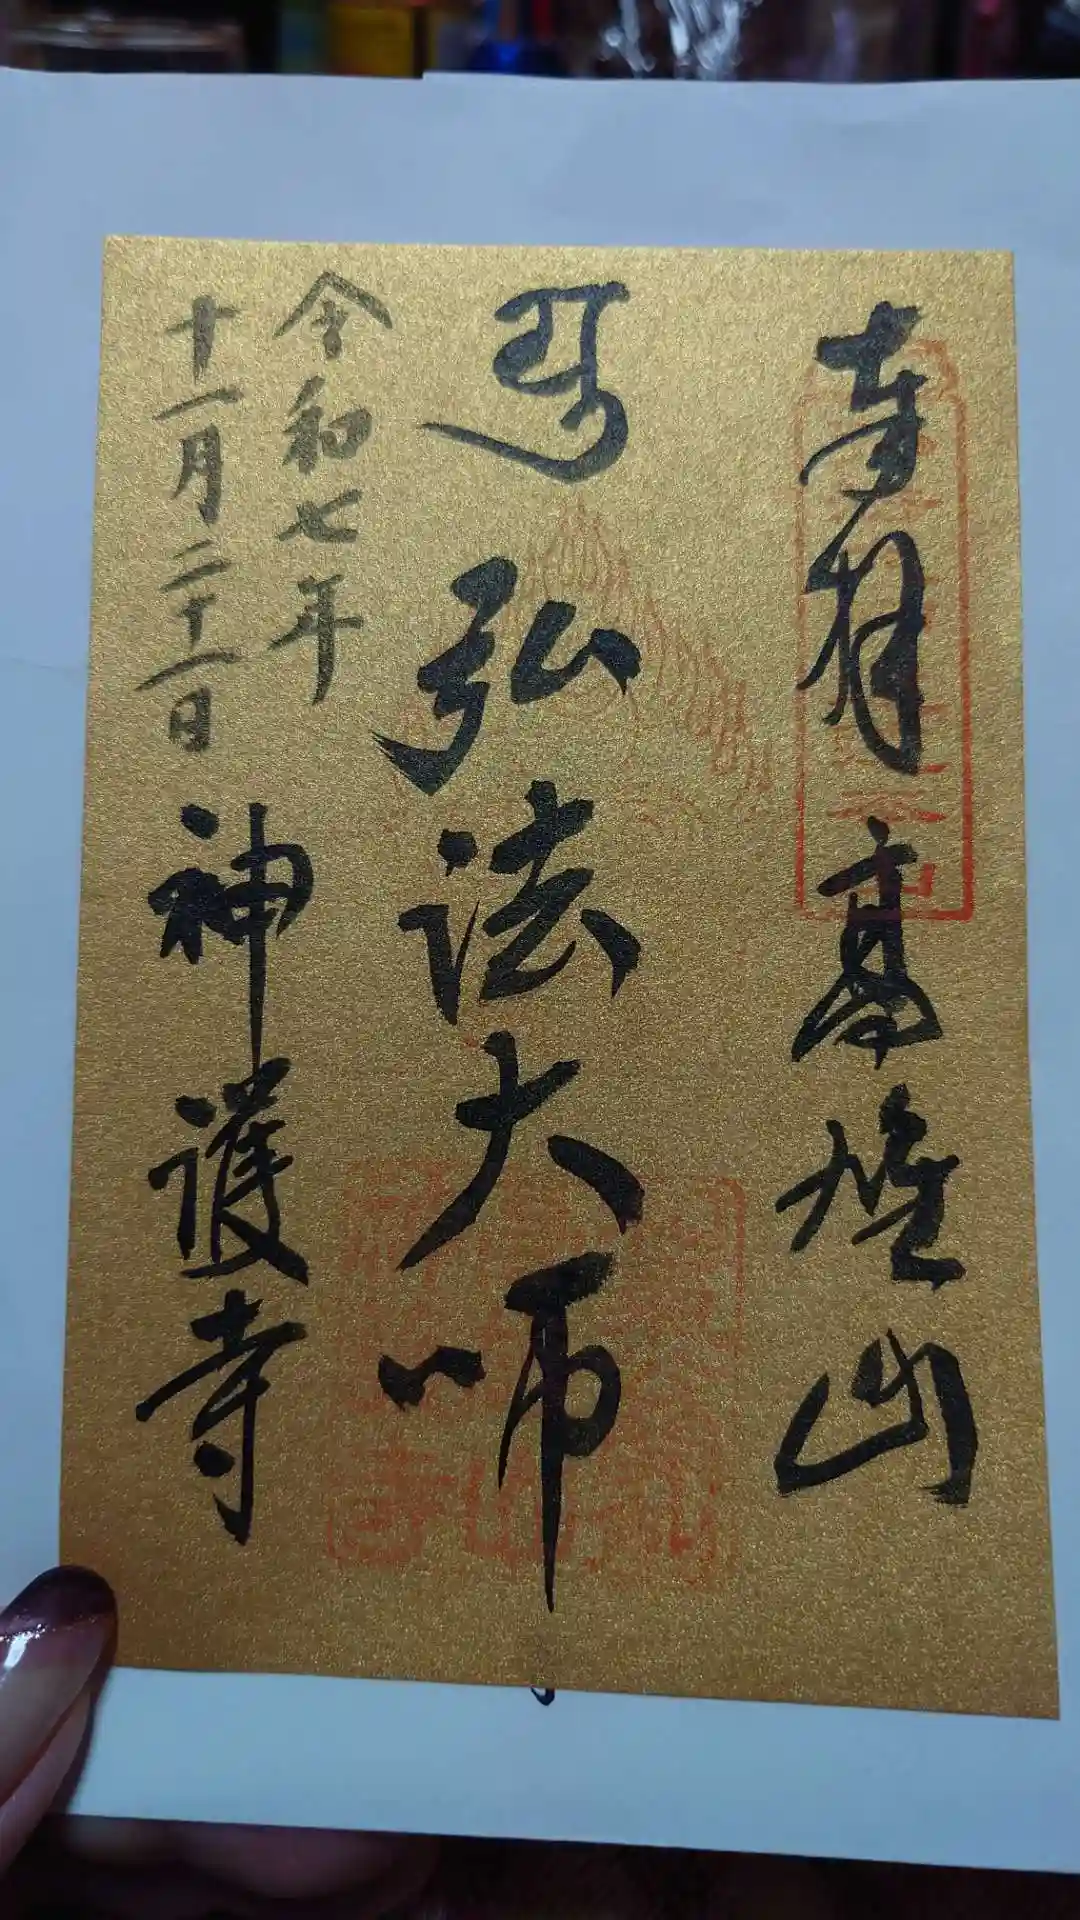 奉拝 高雄山
弘法大師
令和七年
十一月二十二日
神護寺